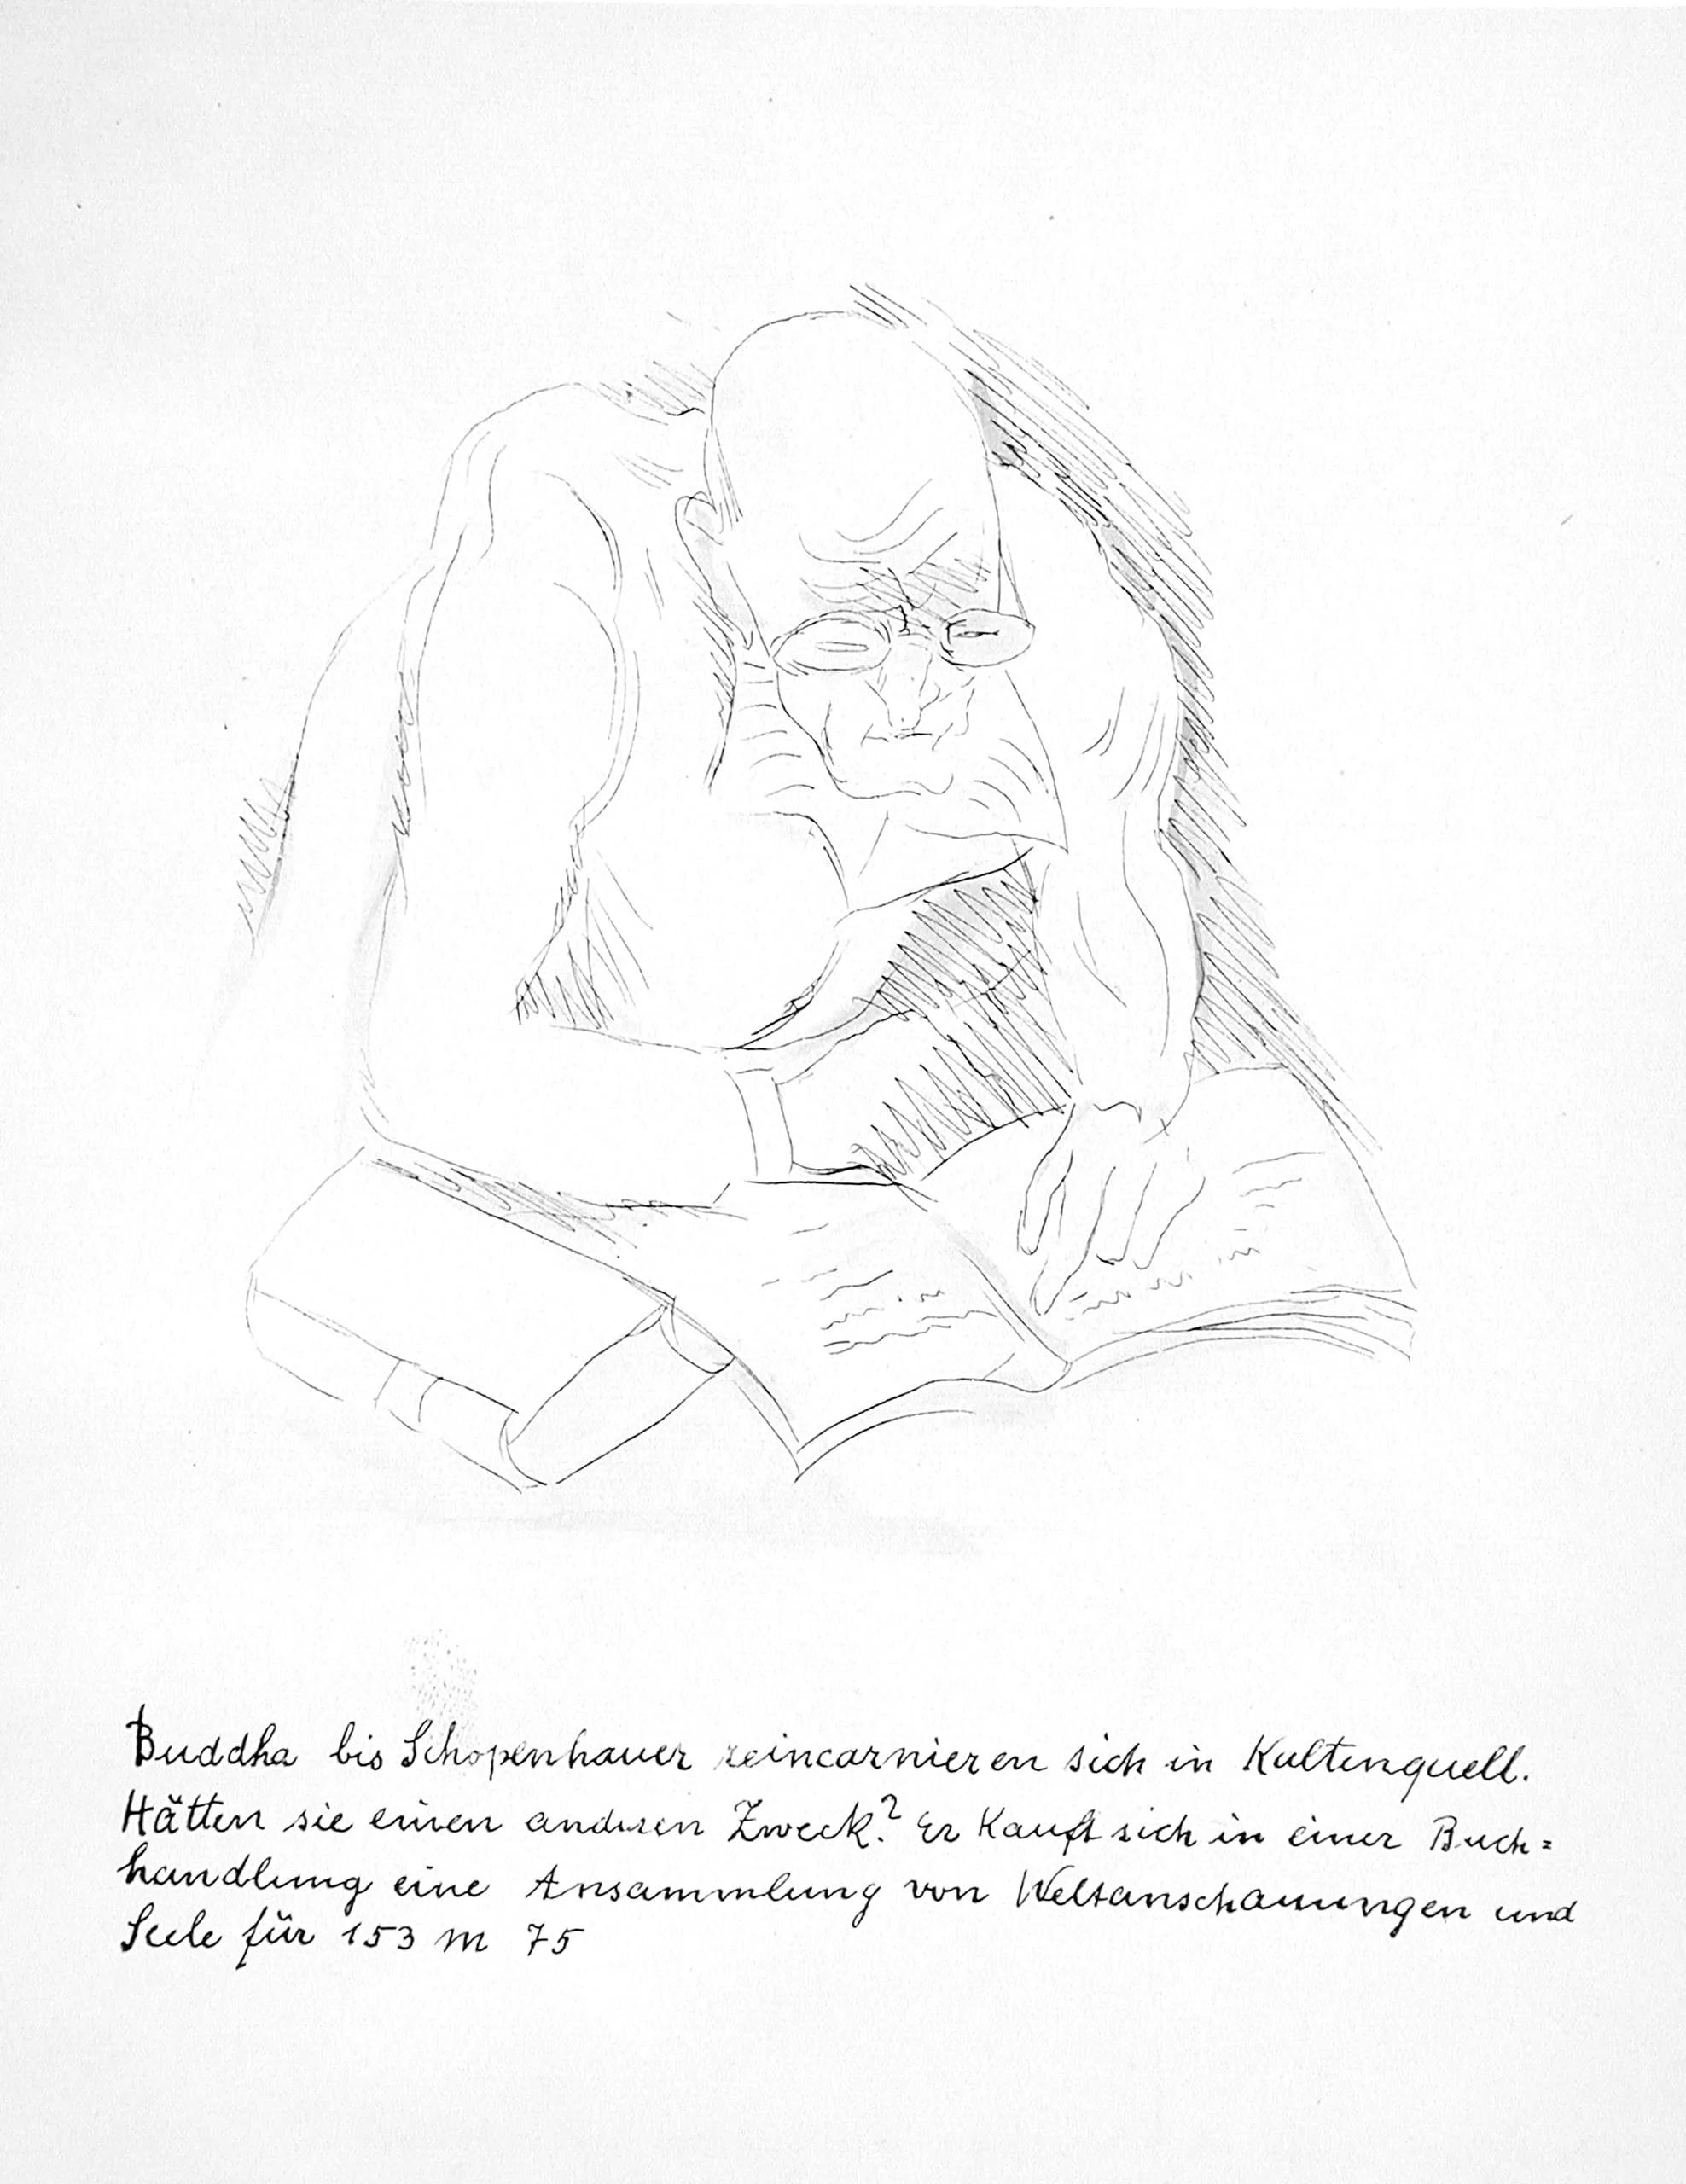 Buddha bis Schopenhauer reincarnieren sich in Kaltenquell.
Hätten sie einen anderen Zweck? Er Kauft sich in einer Buch=
handlung eine Ansammlung von Weltanschauungen und
Seele für 153 M 75